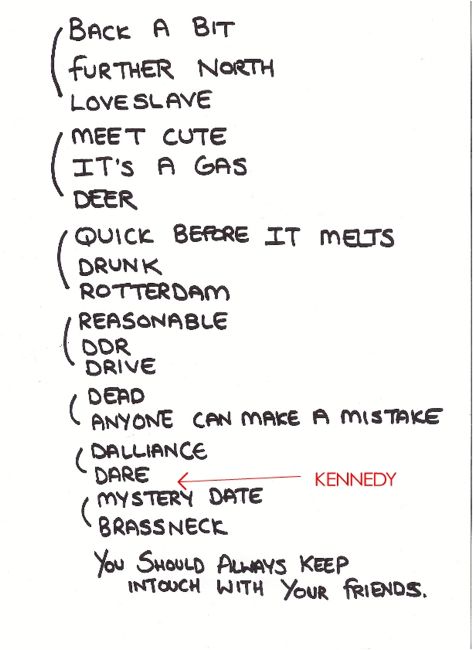 BACK A BIT
FURTHER NORTH
LOVESLAVE
MEET CUTE
IT'S A GAS
DEER
QUICK BEFORE IT MELTS
DRUNK
ROTTERDAM
REASONABLE
DDR
DRIVE
DEAD
ANYONE CAN MAKE A MISTAKE
DALLIANCE
DARE
KENNEDY
MYSTERY DATE
BRASSNECK
YOU SHOULD ALWAYS KEEP
INTOUCH WITH YOUR FRIENDS.